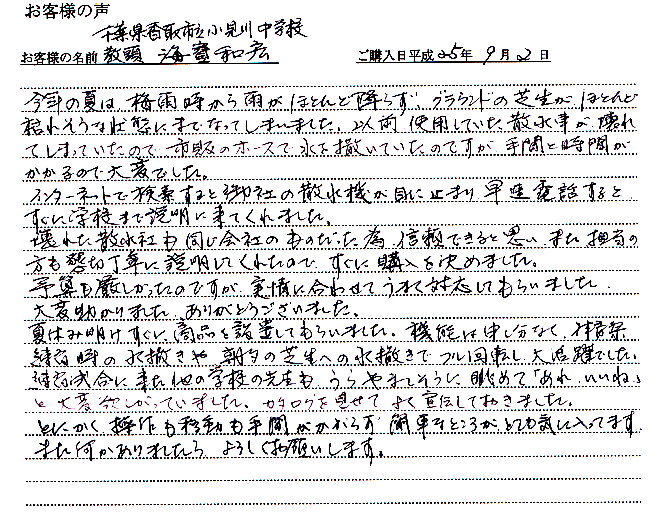 お客様の声
千葉県香取市立小見川中学校
お客様の名前 教頭 海寳和宏 ご購入日平成25年9月2日
今年の夏は、梅雨時から雨がほとんど降らず、グラウンドの芝生がほとんど
枯れそうな状態にまでなってしまいました。以前使用していた散水車が壊れ
てしまっていたので市販のホースで水を撒いていたのですが、手間と時間が
かかるので大変でした。
インターネットで検索すると御社の散水機が目に止まり早速電話すると
すぐに学校まで説明に来てくれました。
壊れた散水車も同じ会社のものだった為、信頼できると思い、また担当の
方も懇切丁寧に説明してくれたので、すぐに購入を決めました。
予算も厳しかったのですが、実情に合わせてうまく対応してもらいました。
大変助かりました。ありがとうございました。
夏休み明けすぐに商品を設置してもらいました。機能は申し分なく、体育祭
練習時の水撒きや朝夕の芝生への水撒きでフル回転し大活躍でした。
練習試合に来た他の学校の先生も、うらやましそうに眺めて「あれ、いいね」
と大変欲しがっていました。カタログを見せてよく宣伝しておきました。
とにかく操作も移動も手間がかからず簡単なところがとても気に入ってます。
また何かありましたら、よろしくお願いします。